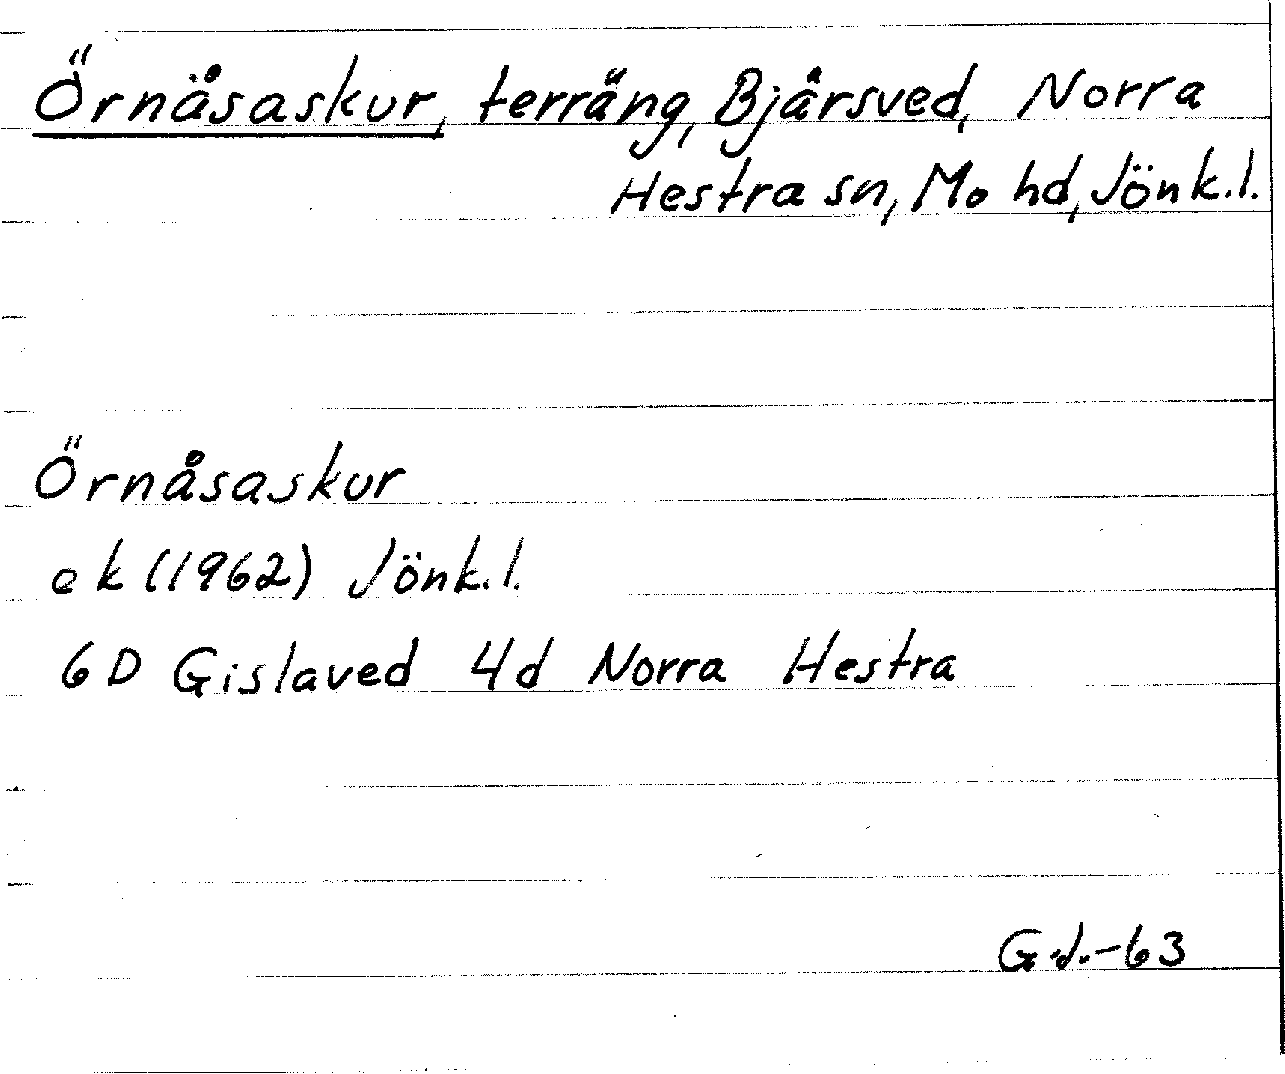 Örnåsaskur, terräng, Bjärsved, Norra
Hestra sn, Mo hd, Jönk.l.
Örnåsaskur
ek (1962) Jönk.l.
6D Gislaved 4d Norra Hestra
G.J.-63